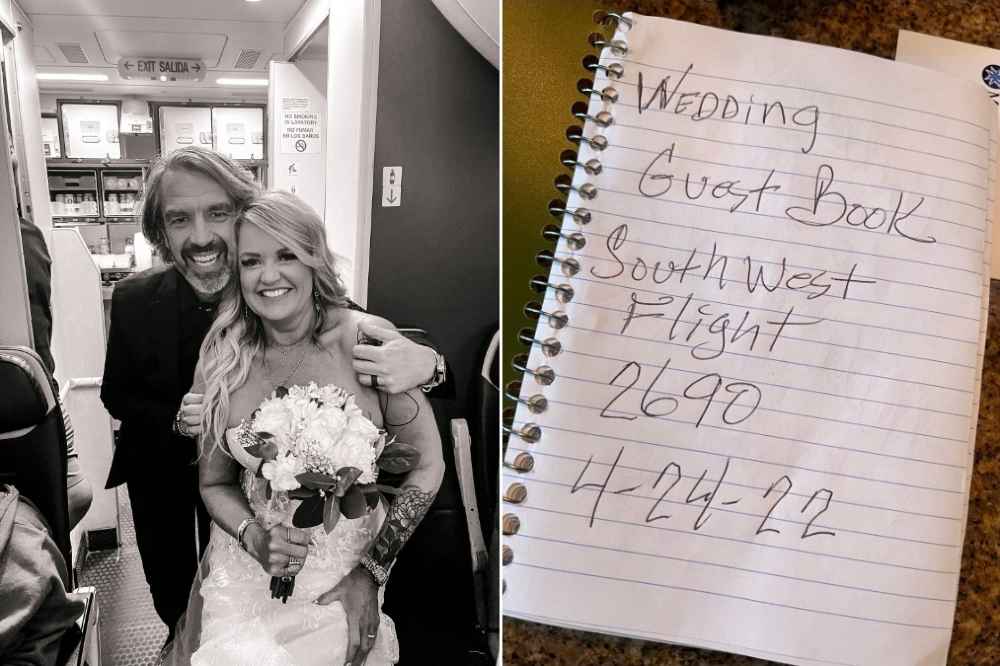 ← EXIT SALIDA →
NO SMOKING
IN LAVATORY
NO FUMAR
EN LOS BAÑOS
WEDDing
Guest Book
SouthWest
Flight
2690
4-24-22